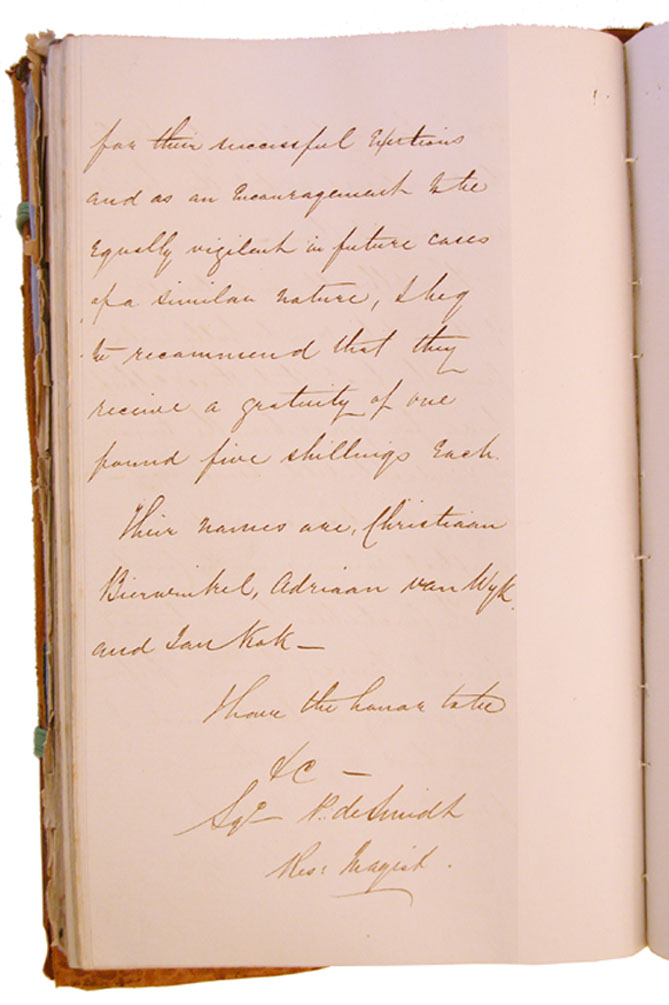 for their successful Exertions
and as an Encouragement to be
Equally vigilant in future cases
of a similar nature, I beg
to recommend that they
receive a gratuity of one
pound five shillings Each.
Their names are, Christiaan
Bierwinkel, Adriaan van Wyk
and Jan Kok —
I have the honor to be
&c —
Sgd P. de Smidt
Res: Magist.